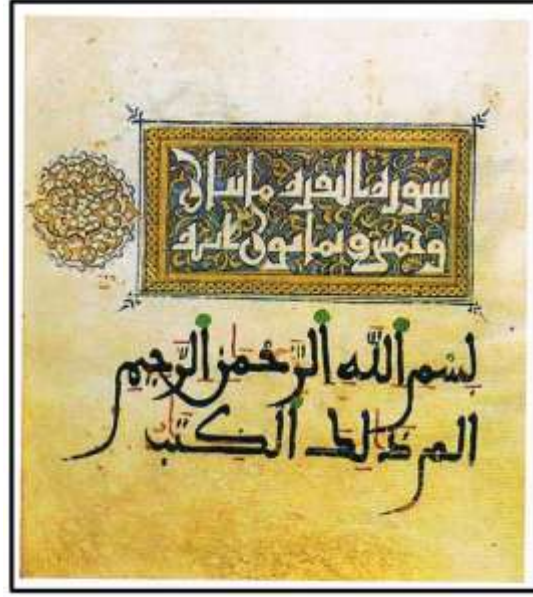 سورة البقرة مايتان
وخمس وثمانون اية
بِسْمِ اللَّهِ الرَّحْمَٰنِ الرَّحِيمِ
الم ذَٰلِكَ الْكِتَٰبُ